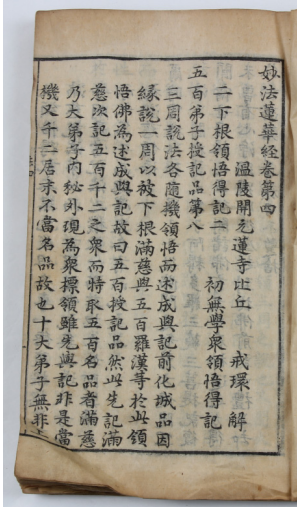 妙法蓮華経巻第四
溫陵開元蓮寺比丘 戒環 解
二下根領悟得記二 初無學衆領悟得記
五百弟子授記品第八
三周說法各隨機領悟而述成與記前化城品因
緣說一周以被下根滿慈與五百羅漢等於此領
悟佛為述成與記故曰五百授記品然此先記滿
慈次記五百千二之衆而特取五百名品者滿慈
乃大弟子內秘外現為衆標領雖先與記非是當
機又千二居末不當名品故也十大弟子無非